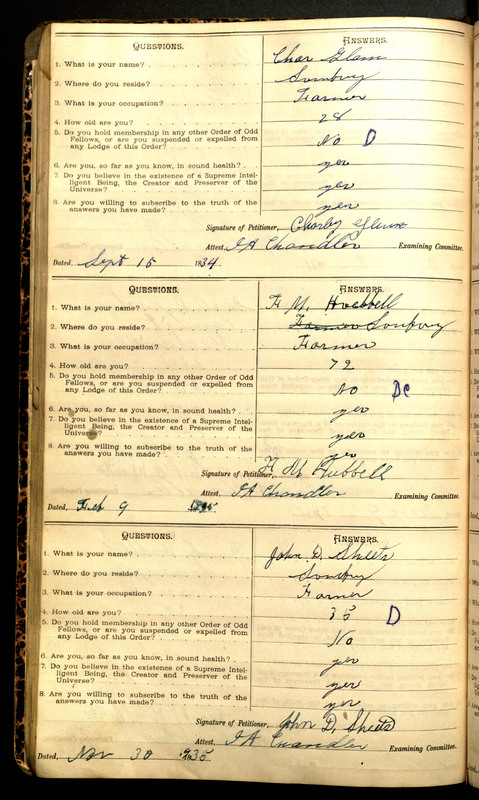 QUESTIONS. ANSWERS.
1. What is your name? Char Glenn
2. Where do you reside? Sunbury
3. What is your occupation? Farmer
4. How old are you? 28
5. Do you hold membership in any other Order of Odd
Fellows, or are you suspended or expelled from
any Lodge of this Order? No D
6. Are you, so far as you know, in sound health? yes
7. Do you believe in the existence of a Supreme Intel-
ligent Being, the Creator and Preserver of the
Universe? yes
8. Are you willing to subscribe to the truth of the
answers you have made? yes
Signature of Petitioner, Charley Glenn
Attest, I A Chandler Examining Committee.
Dated, Sept 15 1834.
QUESTIONS. ANSWERS.
1. What is your name? F M. Hubbell
2. Where do you reside? Farmer Sunbury
3. What is your occupation? Farmer
4. How old are you? 72
5. Do you hold membership in any other Order of Odd
Fellows, or are you suspended or expelled from
any Lodge of this Order? No DC
6. Are you, so far as you know, in sound health? yes
7. Do you believe in the existence of a Supreme Intel-
ligent Being, the Creator and Preserver of the
Universe? yes
8. Are you willing to subscribe to the truth of the
answers you have made? yes
Signature of Petitioner, F M Hubbell
Attest, I A Chandler Examining Committee.
Dated, Feb 9
QUESTIONS. ANSWERS.
1. What is your name? John D. Sheets
2. Where do you reside? Sunbury
3. What is your occupation? Farmer
4. How old are you? 35 D
5. Do you hold membership in any other Order of Odd
Fellows, or are you suspended or expelled from
any Lodge of this Order? No
6. Are you, so far as you know, in sound health? yes
7. Do you believe in the existence of a Supreme Intel-
ligent Being, the Creator and Preserver of the
Universe? yes
8. Are you willing to subscribe to the truth of the
answers you have made? yes
Signature of Petitioner, John D. Sheets
Attest, I A Chandler Examining Committee.
Dated, Nov 30 1935